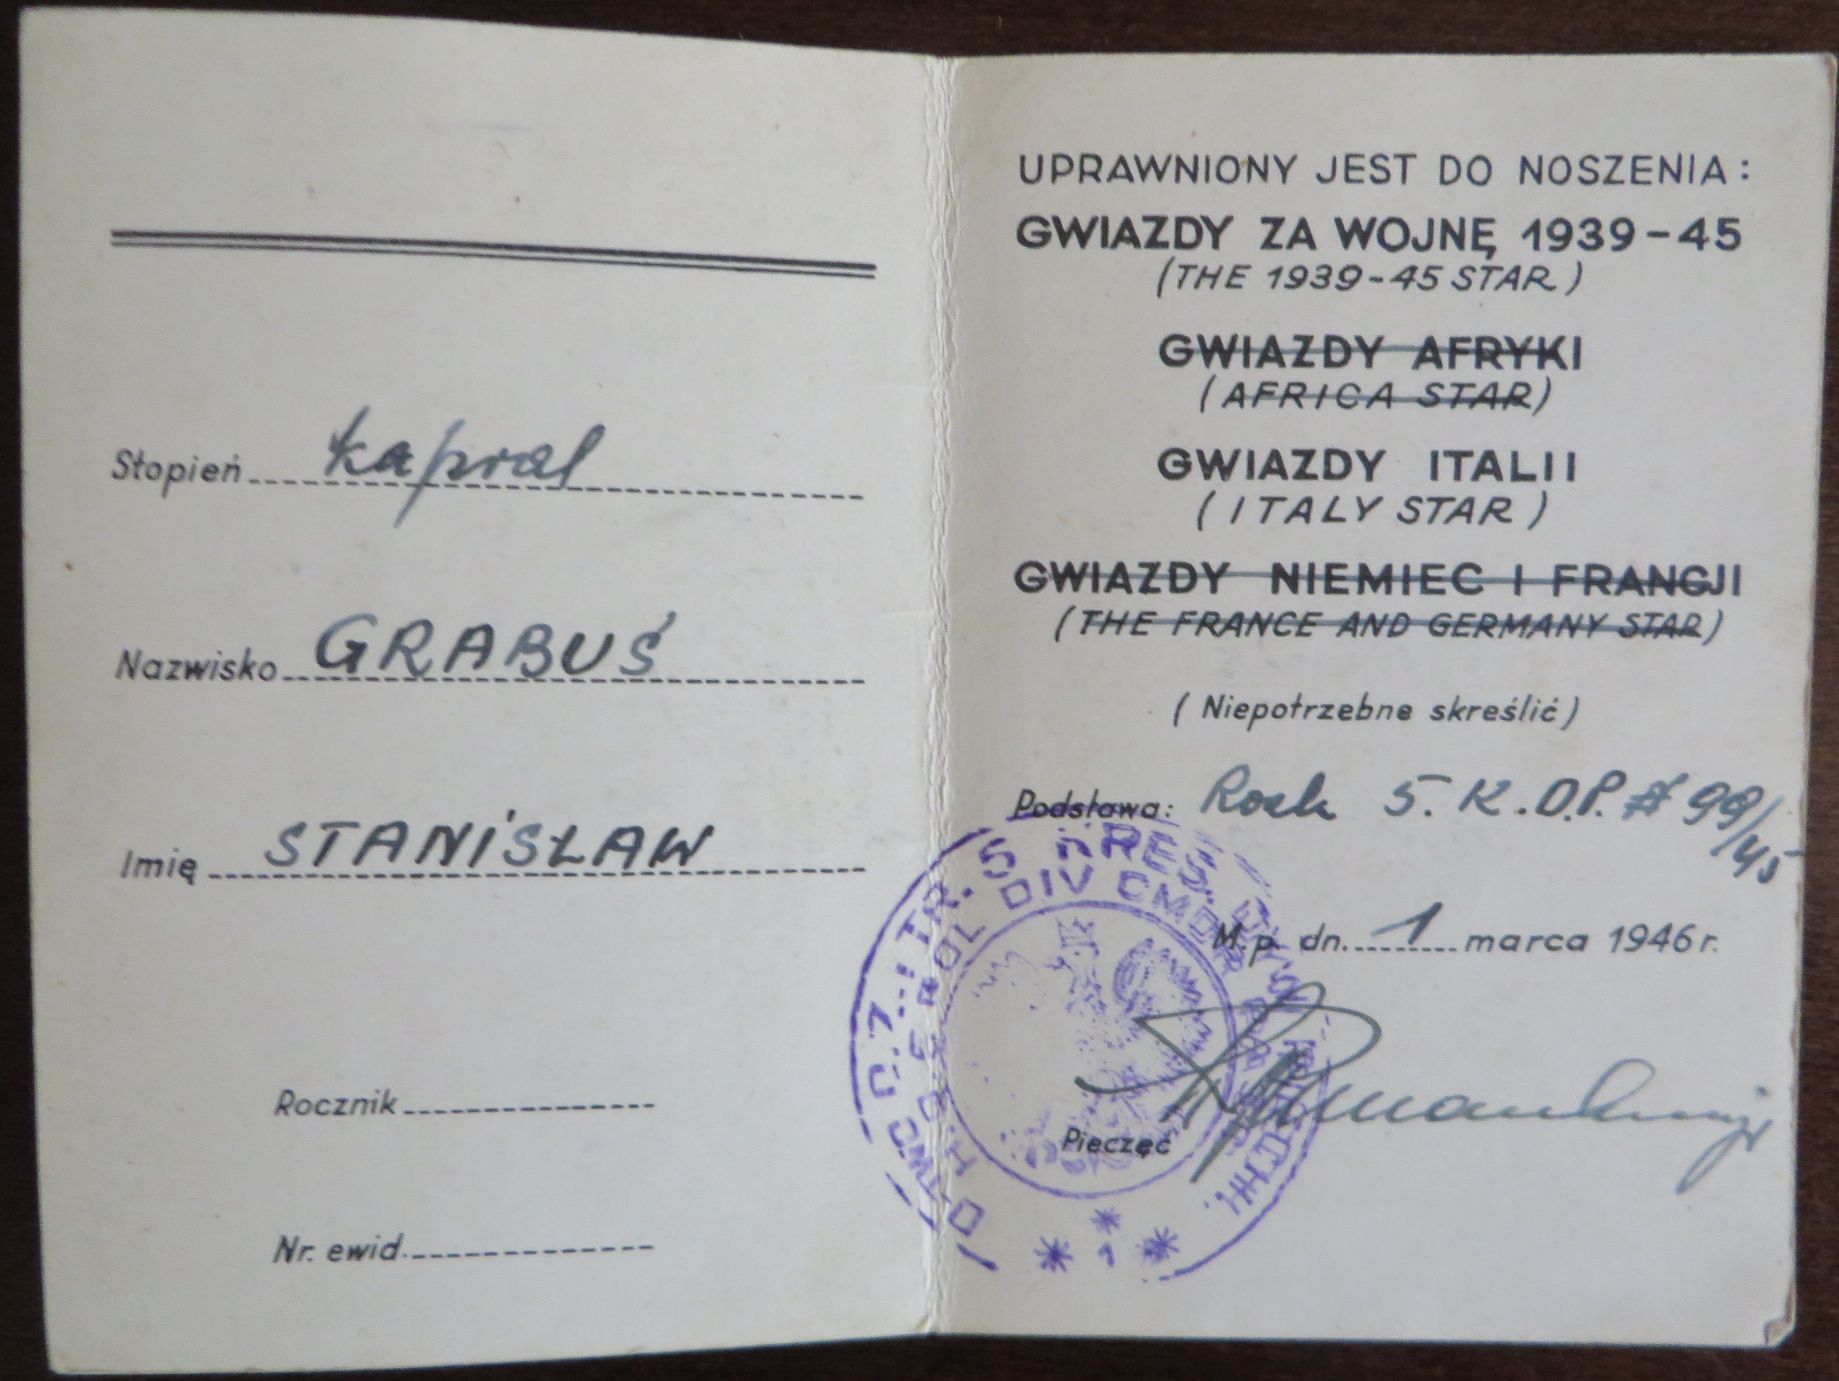 Stopień kapral
Nazwisko GRABUŚ
Imię STANISŁAW
Rocznik
Nr. ewid.
UPRAWNIONY JEST DO NOSZENIA:
GWIAZDY ZA WOJNĘ 1939-45
(THE 1939-45 STAR)
GWIAZDY AFRYKI
(AFRICA STAR)
GWIAZDY ITALII
(ITALY STAR)
GWIAZDY NIEMIEC I FRANCJI
(THE FRANCE AND GERMANY STAR)
(Niepotrzebne skreślić)
Podstawa: 5. K.D.P. # 99/45
M.p. dn. 1 marca 1946 r.
Pieczęć
5 KRES.
POL DIV CMDR